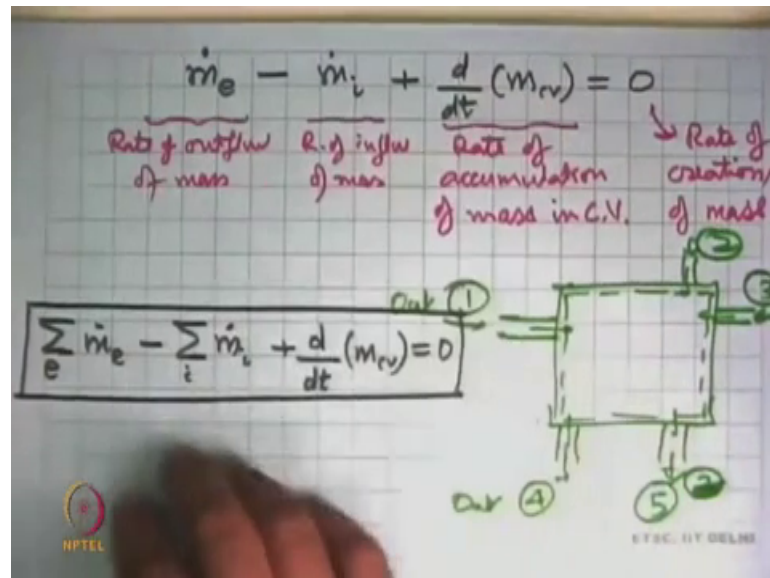 ṁₑ − ṁᵢ + d/dt (m_cv) = 0
Rate of outflow of mass
R. of inflow of mass
Rate of accumulation of mass in C.V.
Rate of creation of mass
Out ① 
②
③
∑ₑ ṁₑ − ∑ᵢ ṁᵢ + d/dt (m_cv) = 0
Out ④
⑤
NPTEL
ETSC, IIT DELHI